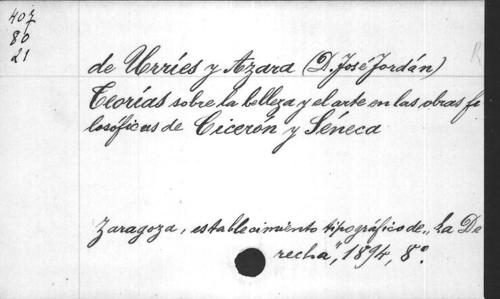 407
80
21
de Urríes y Azara (D. José Jordán)
Teorías sobre la belleza y el arte en las obras fi
losóficas de Cicerón y Séneca
Zaragoza, establecimiento tipográfico de „La De
recha", 1894, 8º.